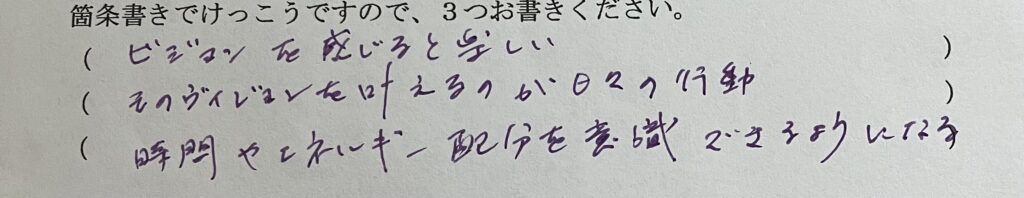 箇条書きでけっこうですので、3つお書きください。
( ビジョンを感じると楽しい )
( そのヴィジョンを叶えるのが日々の行動 )
( 時間やエネルギー配分を意識できるようになる